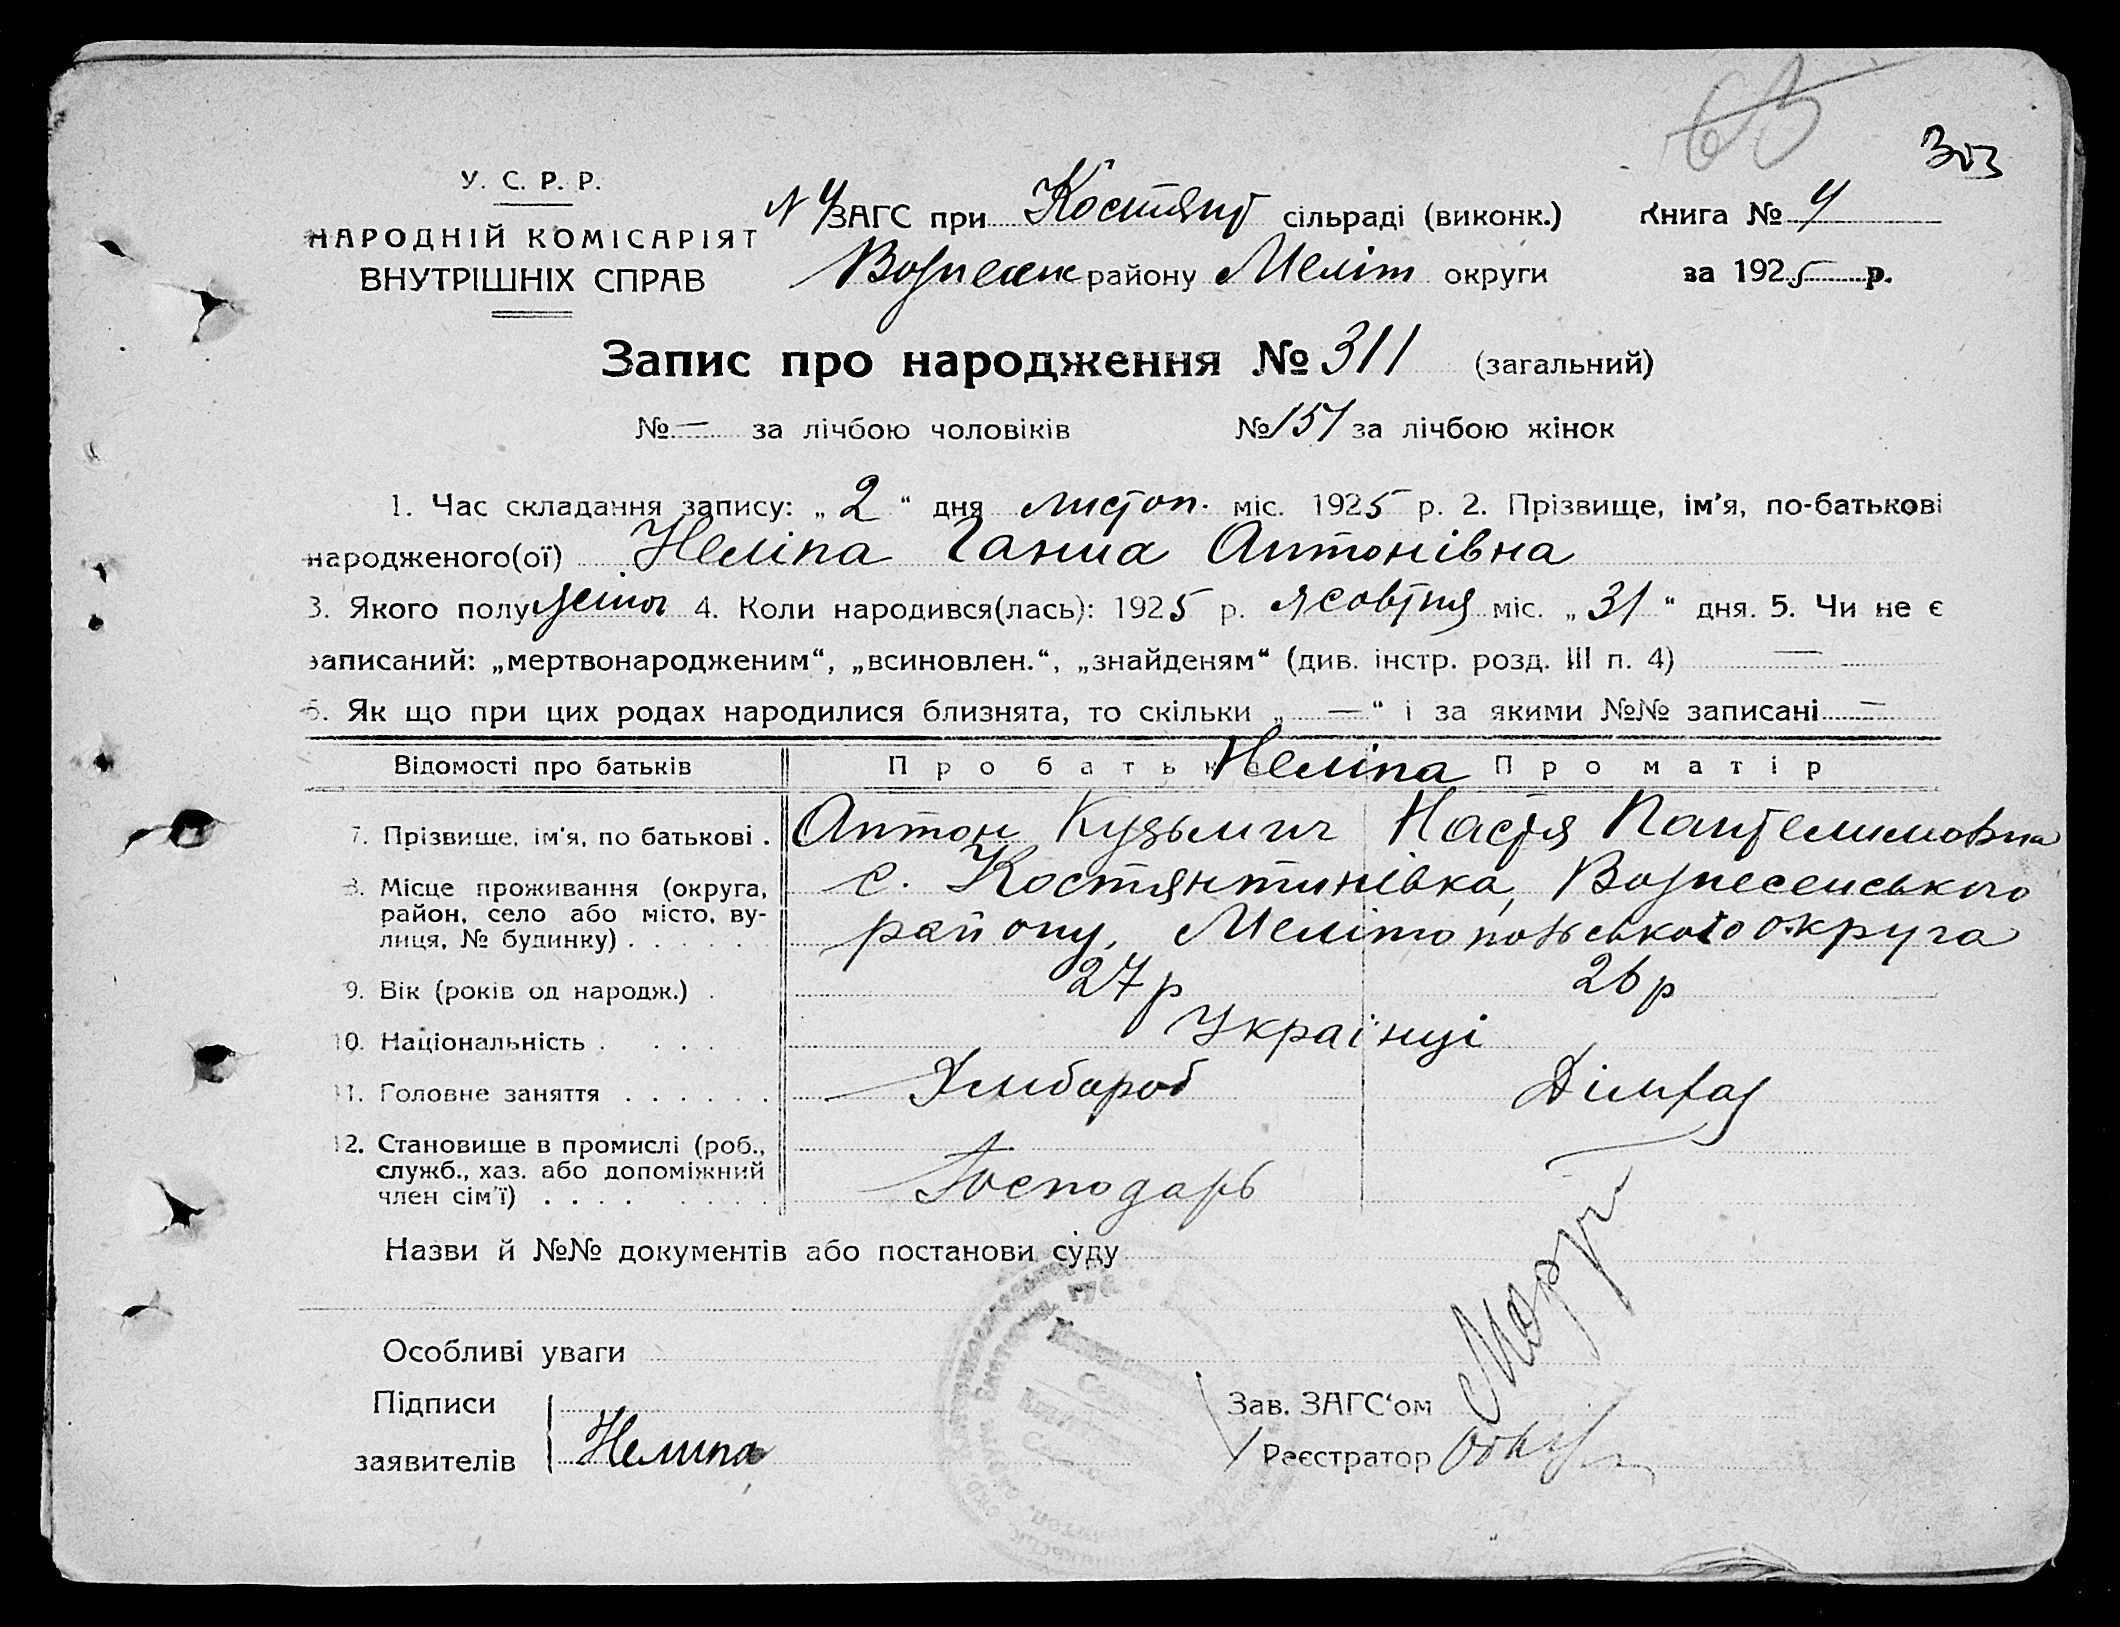 303
У. С. Р. Р.
НАРОДНІЙ КОМІСАРІЯТ
ВНУТРІШНІХ СПРАВ
N 4 ЗАГС при Костянт сільраді (виконк.)
Вознесенс району Меліт округи
Книга № 4
за 1925 р.
Запис про народження № 311 (загальний)
№ — за лічбою чоловіків № 151 за лічбою жінок
1. Час складання запису: „ 2 “ дня листоп. міс. 1925 р. 2. Прізвище, ім'я, по-батькові
народженого(ої) Неліпа Ганна Антонівна
3. Якого полу жіноч 4. Коли народився(лась): 1925 р. жовтня міс. „ 31 “ дня. 5. Чи не є
записаний: „мертвонародженим“, „всиновлен.“, „знайденям“ (див. інстр. розд. III п. 4) —
6. Як що при цих родах народилися близнята, то скільки „ — “ і за якими №№ записані —
Відомості про батьків Про батька Неліпа Про матір
7. Прізвище, ім'я, по батькові . Антон Кузьмич Настя Пантелимовна
8. Місце проживання (округа, с. Костянтинівка, Вознесенського
район, село або місто, ву-
лиця, № будинку) . . . . . району, Мелітопольського округа
9. Вік (років од народж.) . 27 р 26 р
10. Національність . . . . Українці
11. Головне заняття . . . . . . Хлибороб
12. Становище в промислі (роб.,
служб., хаз. або допоміжний Господарь
член сім'ї) . . . . . . . .
Назви й №№ документів або постанови суду
Особливі уваги
Підписи
заявителів Нелипа
Зав. ЗАГС'ом
Реєстратор